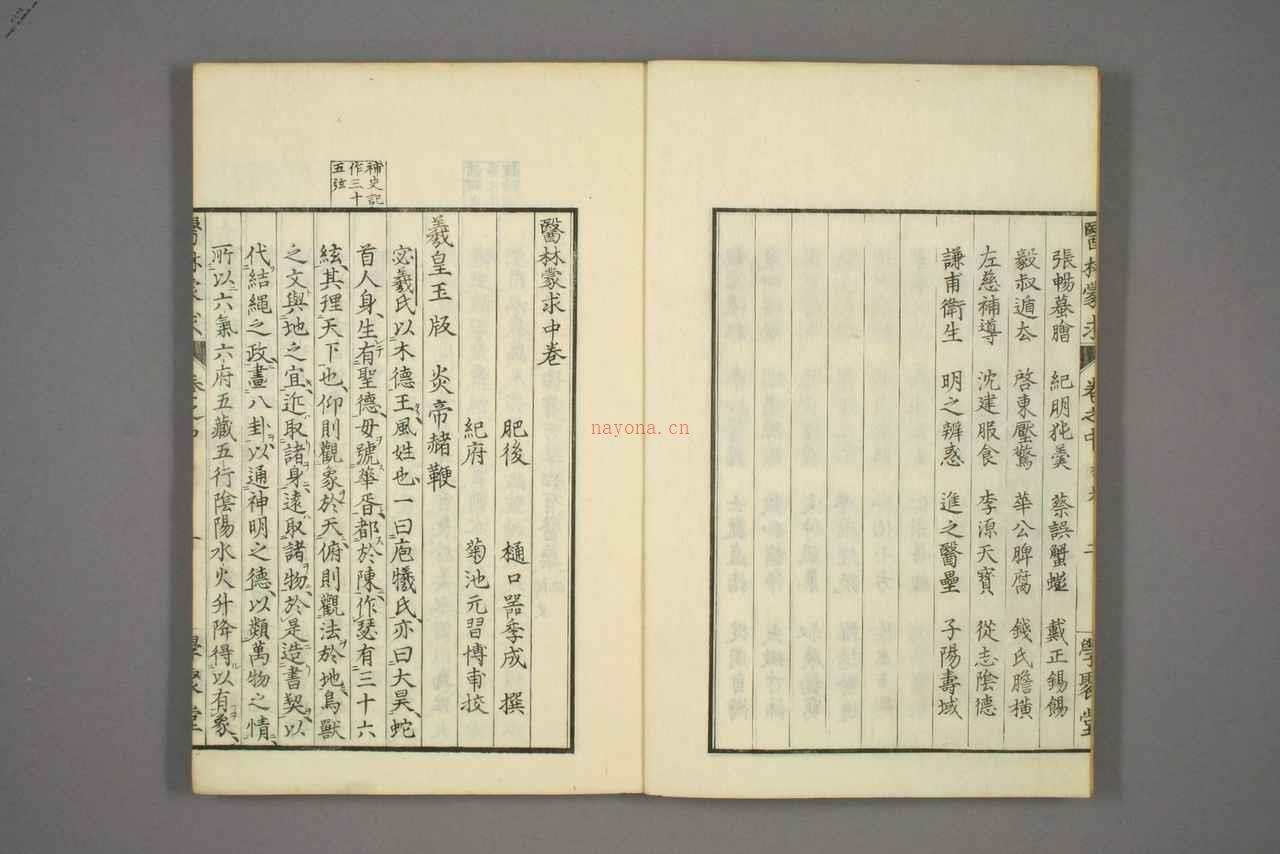 張暢蟇膾 紀明㹠羹 蔡誤蟹蟚 戴正錫餳
毅叔遁厺 啓東壓驚 華公脾腐 錢氏膽橫
左慈補導 沈建服食 李源天寶 從志陰德
謙甫衛生 明之辨惑 進之醫壘 子陽壽域
醫林蒙求 卷之中 二 學聚堂
補史記
作三十
五弦
醫林蒙求中卷
肥後 樋口器季成 撰
紀府 菊池元習博甫校
羲皇玉版 炎帝赭鞭
宓羲氏以木德王風姓也一曰庖犧氏亦曰大昊蛇
首人身生有聖德母號華胥都於陳作瑟有三十六
絃其理天下也仰則觀象於天俯則觀法於地鳥獸
之文與地之宜近取諸身遠取諸物於是造書契以
代結繩之政畫八卦以通神明之德以類萬物之情
所以六氣六府五藏五行陰陽水火升降得以有象
醫林蒙求 學聚堂
nayona.cn